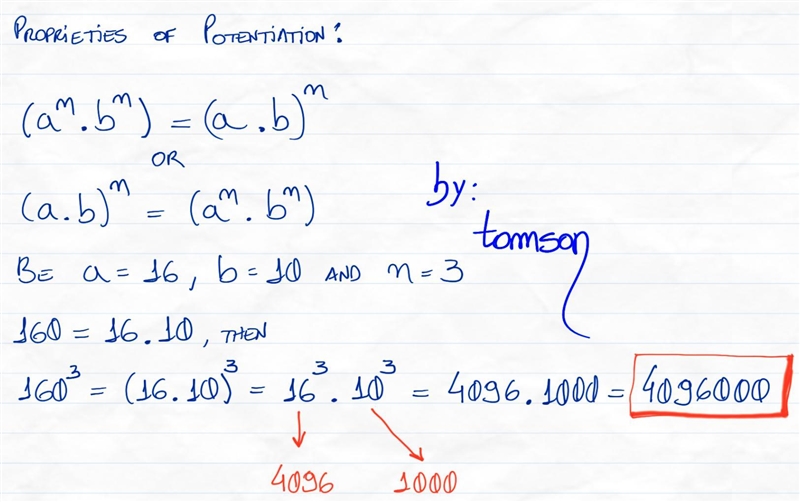 PROPRIETIES OF POTENTIATION:
(aⁿ.bⁿ) = (a.b)ⁿ
OR
(a.b)ⁿ = (aⁿ.bⁿ)
by:
tomson
BE a=16, b=10 AND n=3
160 = 16.10, THEN
160³ = (16.10)³ = 16³.10³ = 4096.1000 = 4096000
4096 1000